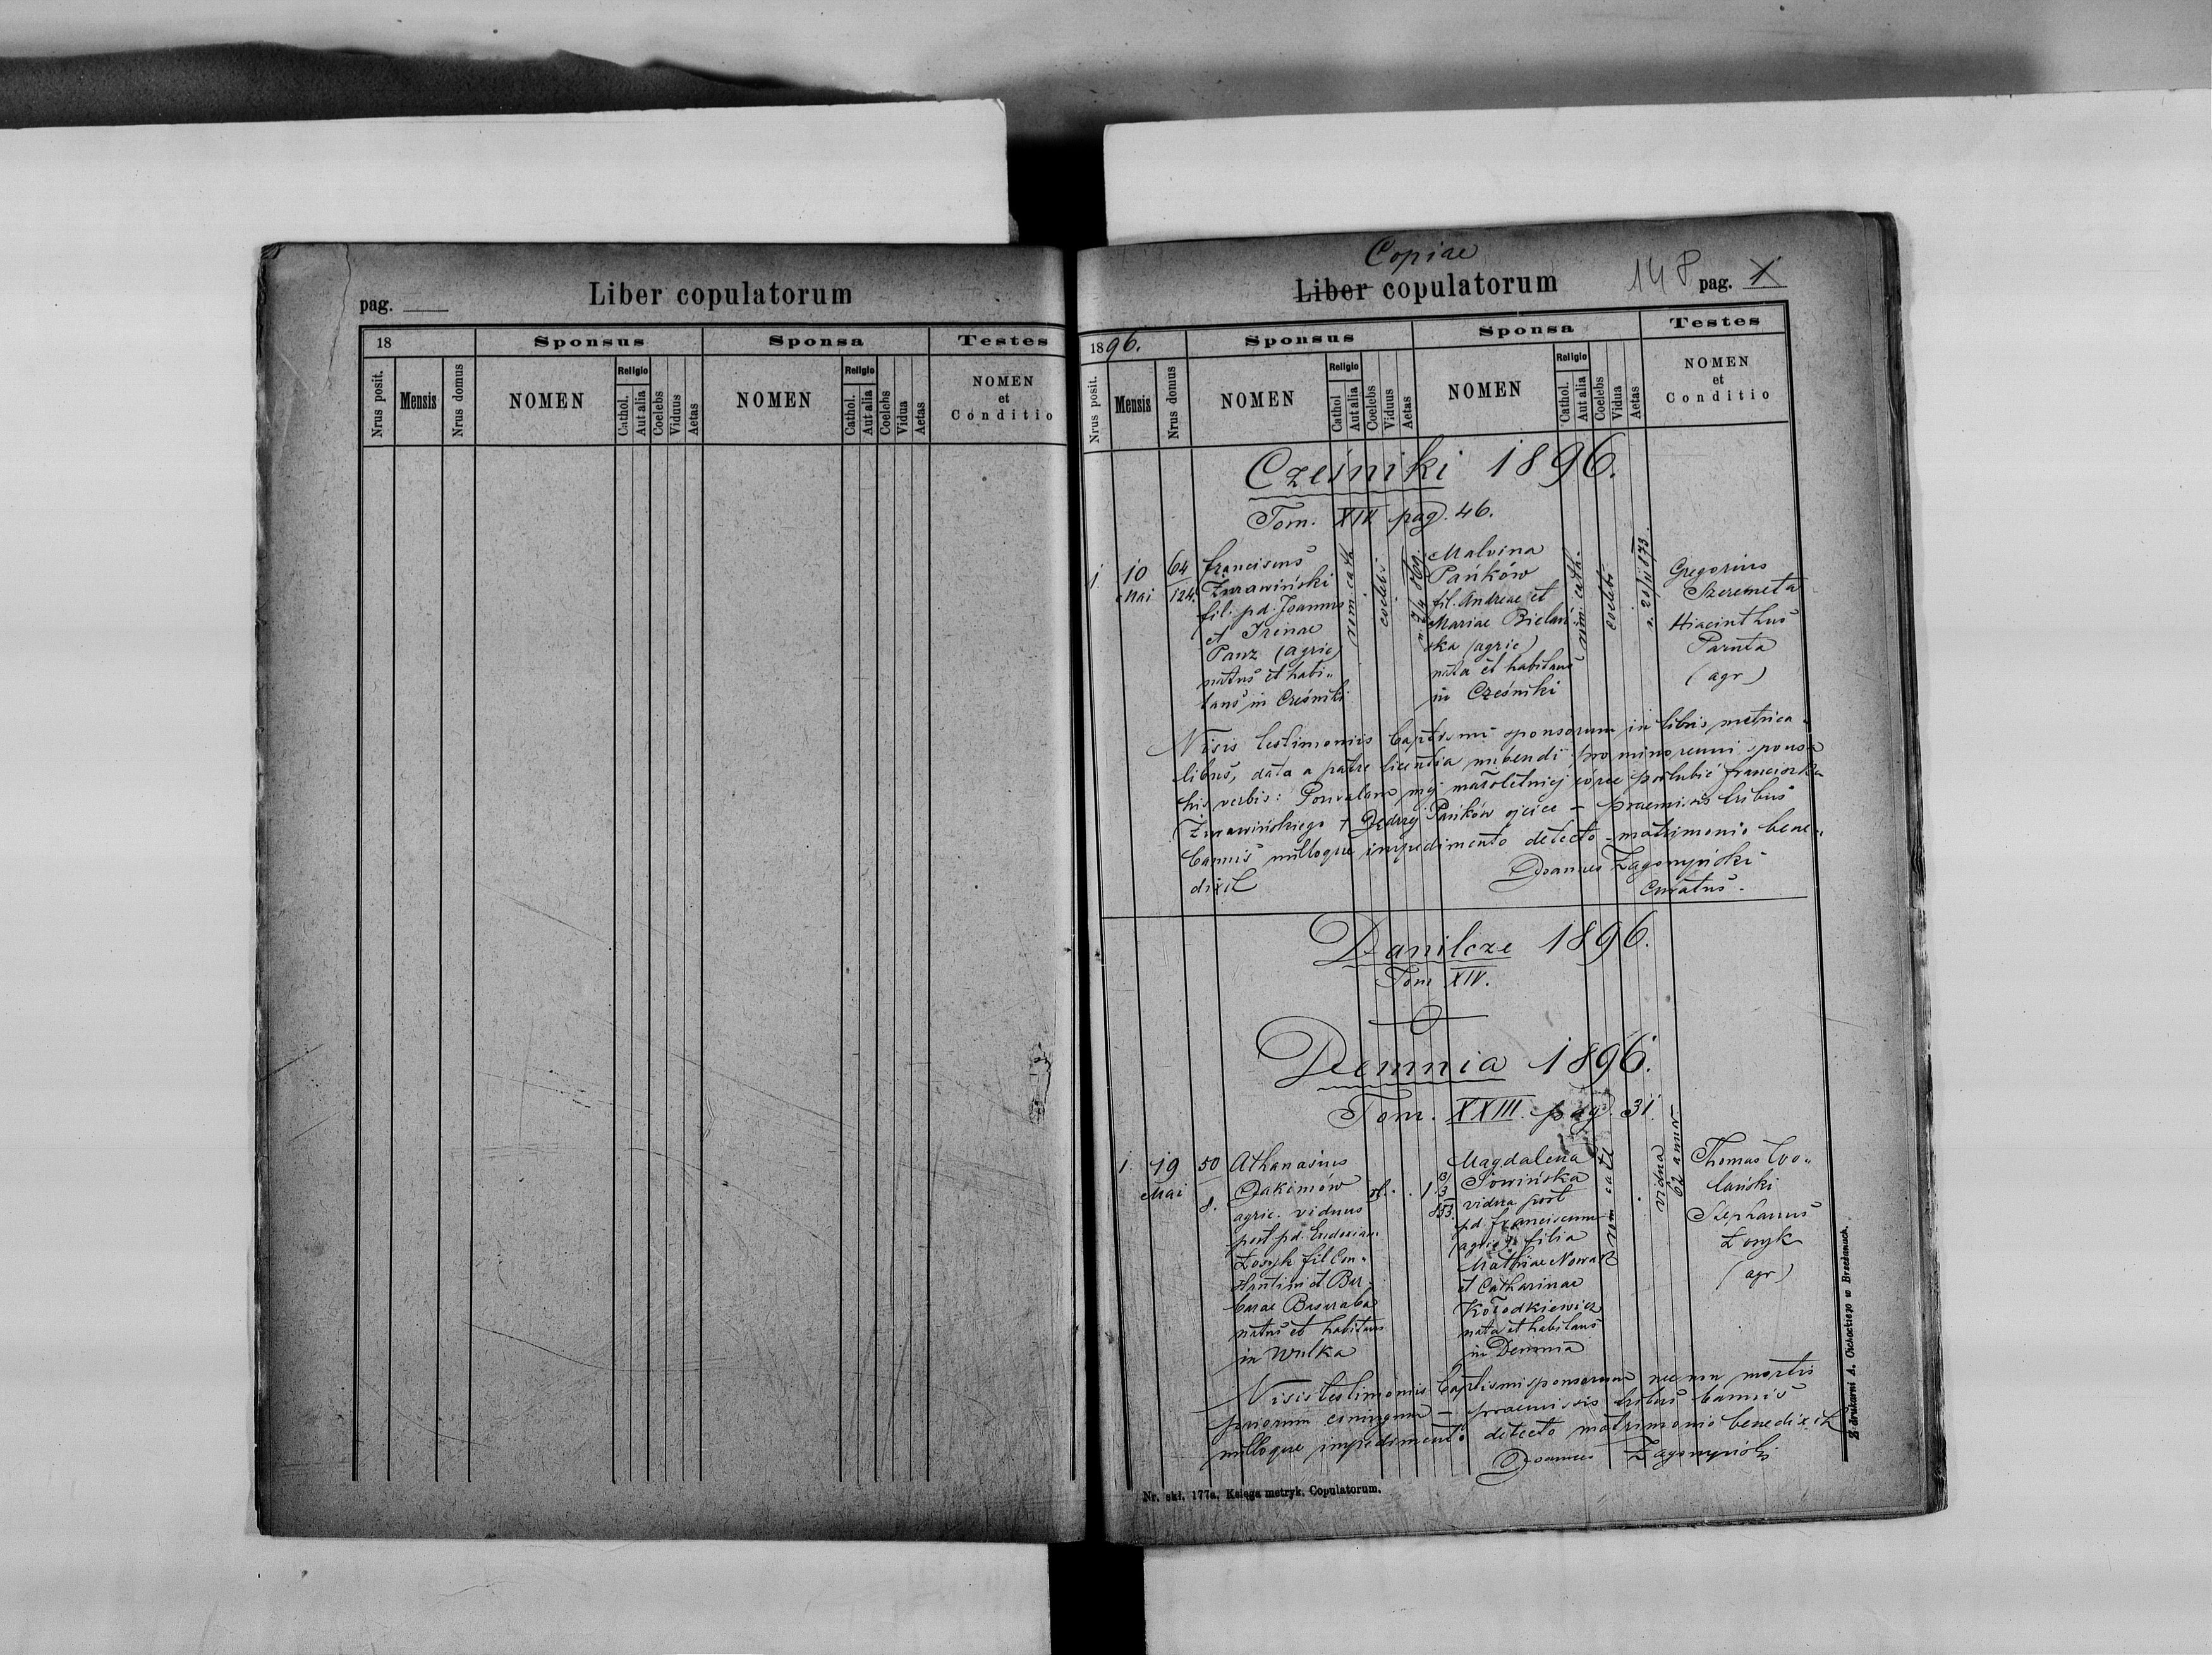 pag.
Liber copulatorum
18
Sponsus
Sponsa
Testes
Nrus posit.
Mensis
Nrus domus
NOMEN
Religio
Cathol.
Aut alia
Coelebs
Viduus
Aetas
NOMEN
Religio
Cathol.
Aut alia
Coelebs
Vidua
Aetas
NOMEN
et
Conditio
Copiae
Liber copulatorum
148 pag. 1
1896.
Sponsus
Sponsa
Testes
Nrus posit.
Mensis
Nrus domus
NOMEN
Religio
Cathol.
Aut alia
Coelebs
Viduus
Aetas
NOMEN
Religio
Cathol.
Aut alia
Coelebs
Vidua
Aetas
NOMEN
et
Conditio
Cześniki 1896.
Tom. XIV pag. 46.
1
10
Mai
64
124.
Franciscus
Żurawiński
fil. pd. Joannis
et Irenae
Panz (agric)
natus et habi„
tans in Cześniki
rim. cath
coelebs
Malvina
Pańków
fil. Andreae et
Mariae Bielań
ska (agric)
nata et habitans
in Cześniki
rim. cath.
coelebs
n. 20/11 873.
Gregorius
Szeremeta
Hiacinthus
Parnta
(agr)
Visis testimoniis baptismi sponsorum in libris metrica„
libus, data a patre licentia nubendi pro minorenni sponsa
his verbis: Pozwalam mej małoletniej córce poślubić Franciszka
Żurawińskiego + Jędrzej Pańków ojciec – praemissis tribus
bannis nulloque impedimento detecto – matrimonio bene„
dixit
Joannes Zagorzyński
Curatus.
Danilcze 1896.
Tom XIV.
Demnia 1896.
Tom. XXIII. pag. 31.
1.
19
Mai
50
8.
Athanasius
Jakimów
agric. viduus
post pd. Eudoxiam
Łozyk fil Con„
stantini et Bar„
barae Basaraba
natus et habitans
in Wulka
1
3
853.
Magdalena
Sowińska
vidua post
pd. Franciscum
(agric) filia
Mathiae Nowak
et Catharinae
Kołodkiewicz
nata et habitans
in Demnia
rim cath
vidua
62 annor
Thomas Wo„
lański
Stephanus
Łozyk
(agr)
Visis testimoniis baptismi sponsorum nec non mortis
priorum conjugum – praemissis tribus bannis
nulloque impedimento detecto matrimonio benedixit
Joannes Zagorzyński
Nr. skł. 177a. Księga metryk. Copulatorum.
Z drukarni A. Cichockiego w Brzeżanach.